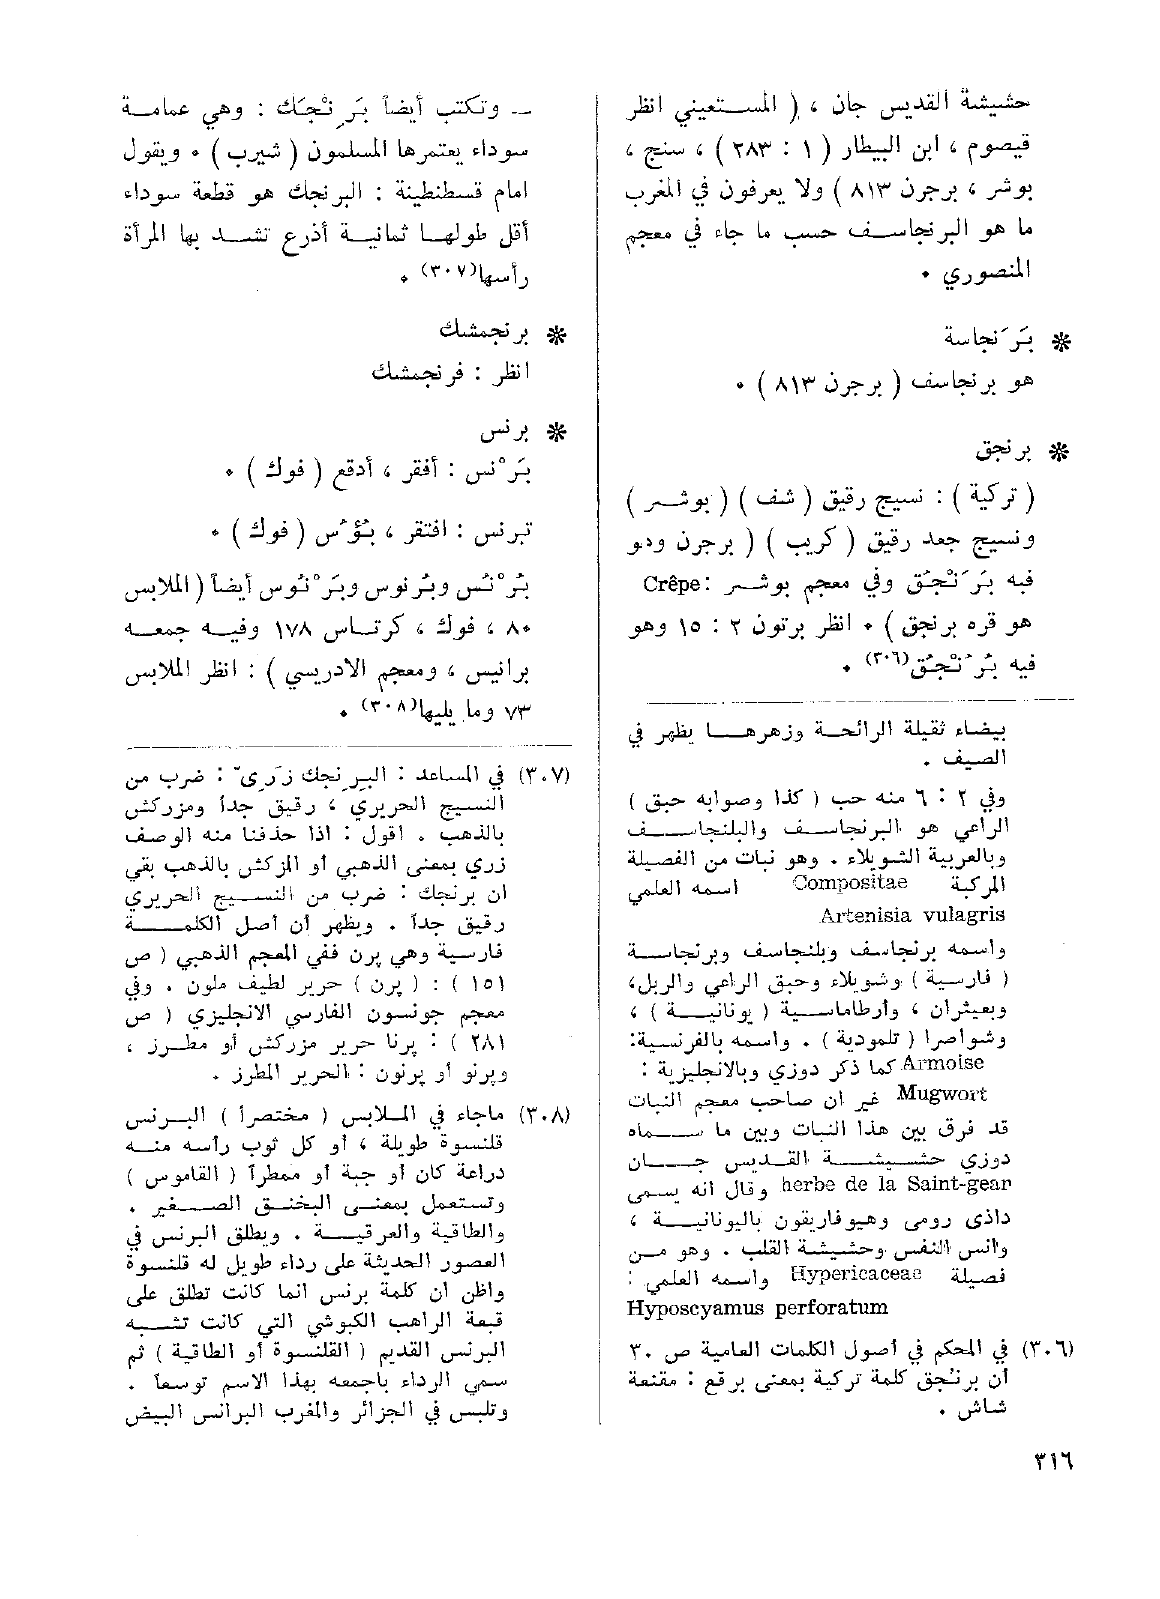 حشيشة القديس جان ، ( المستعيني انظر
قيصوم ، ابن البيطار ( ١ : ٢٨٣ ) ، سنج ،
بوشر ، برجرن ٨١٣ ) ولا يعرفون في المغرب
ما هو البرنجاسف حسب ما جاء في معجم
المنصوري ٠
❋ بَرَنجاسة
هو برنجاسف ( برجرن ٨١٣ ) ٠
❋ برنجق
( تركية ) : نسيج رقيق ( شف ) ( بوشر )
ونسيج جعد رقيق ( كريب ) ( برجرن وهو
فيه بَرَنْجُق وفي معجم بوشر Crêpe:
هو قره برنجق ) ٠ انظر برتون ٢ : ١٥ وهو
فيه بُرَنْجُق(٣٠٦) ٠
بيضاء ثقيلة الرائحة وزهرها يظهر في
الصيف .
وفي ٢ : ٦ منه حب ( كذا وصوابه حبق )
الراعي هو البرنجاسف والبلنجاسف
وبالعربية الشويلاء . وهو نبات من الفصيلة
المركبة Compositae اسمه العلمي
Artenisia vulagris
واسمه برنجاسف وبلنجاسف وبرنجاسة
( فارسية ) وشويلاء وحبق الراعي والربل،
وبعيثران ، وأرطاماسية ( يونانية ) ،
وشواصرا ( تلمودية ) . واسمه بالفرنسية:
Armoise كما ذكر دوزي وبالانجليزية :
Mugwort غير ان صاحب معجم النبات
قد فرق بين هذا النبات وبين ما سماه
دوزي حشيشة القديس جان
herbe de la Saint-gear وقال انه يسمى
داذي رومي وهيوفاريقون باليونانية ،
وانس النفس وحشيشة القلب . وهو من
فصيلة Hypericaceae واسمه العلمي :
Hyposcyamus perforatum
(٣٠٦) في المحكم في أصول الكلمات العامية ص ٣٠
أن برنجق كلمة تركية بمعنى برقع : مقنعة
شاش .
ـ وتكتب أيضاً بَرِنْجَك : وهي عمامة
سوداء يعتمرها المسلمون ( شيرب ) ٠ ويقول
امام قسطنطينة : البرنجك هو قطعة سوداء
أقل طولها ثمانية أذرع تشد بها المرأة
رأسها(٣٠٧) ٠
❋ برنجمشك
انظر : فرنجمشك
❋ برنس
بَرْنس : أفقر ، أدقع ( فوك ) ٠
تبرنس : افتقر ، بَؤُس ( فوك ) ٠
بُرْنُس وبرُنوس وبَرْنُوس أيضاً ( الملابس
٨٠ ، فوك ، كرتاس ١٧٨ وفيه جمعه
برانيس ، ومعجم الادريسي ) : انظر الملابس
٧٣ وما يليها(٣٠٨) ٠
(٣٠٧) في المساعد : البِرِنجك زَرِي : ضرب من
النسيج الحريري ، رقيق جداً ومزركش
بالذهب . اقول : اذا حذفنا منه الوصف
زري بمعنى الذهبي أو المزكش بالذهب بقي
ان برنجك : ضرب من النسيج الحريري
رقيق جداً . ويظهر أن أصل الكلمة
فارسية وهي پرن ففي المعجم الذهبي ( ص
١٥١ ) : ( پرن ) حرير لطيف ملون . وفي
معجم جونسون الفارسي الانجليزي ( ص
٢٨١ ) : پرنا حرير مزركش أو مطرز ،
وپرنو أو پرنون : الحرير المطرز .
(٣٠٨) ماجاء في الملابس ( مختصراً ) البرنس
قلنسوة طويلة ، أو كل ثوب رأسه منه
دراعة كان أو جبة أو ممطراً ( القاموس )
وتستعمل بمعنى البخنق الصغير .
والطاقية والعرقية . ويطلق البرنس في
العصور الحديثة على رداء طويل له قلنسوة
واظن ان كلمة برنس انما كانت تطلق على
قبعة الراهب الكبوشي التي كانت تشبه
البرنس القديم ( القلنسوة أو الطاقية ) ثم
سمي الرداء باجمعه بهذا الاسم توسعاً .
وتلبس في الجزائر والمغرب البرانس البيض
٣١٦